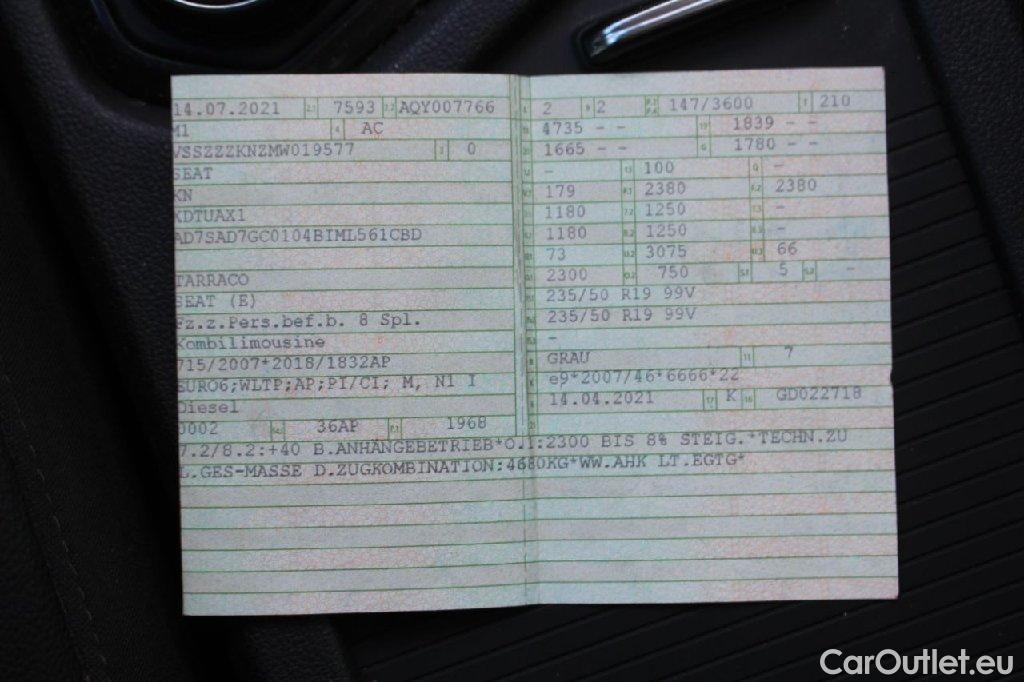 14.07.2021 2.1 7593 2.2 AQY007766
M1 4 AC
VSSZZZKNZMW019577 3 0
SEAT
KN
XDTUAX1
AD7SAD7GC0104BIML561CBD
TARRACO
SEAT (E)
Fz.z.Pers.bef.b. 8 Spl.
Kombilimousine
715/2007*2018/1832AP
EURO6;WLTP;AP;PI/CI; M, N1 I
Diesel
0002 36AP 1968
L 2 9 2 P.2 P.4 147/3600 T 210
18 4735 - - 19 1839 - -
20 1665 - - G 1780 - -
- 13 100 Q -
179 F.1 2380 F.2 2380
1180 7.2 1250 7.3 -
1180 8.2 1250 8.3 -
73 U.2 3075 U.3 66
2300 O.2 750 S.1 5 S.2 -
235/50 R19 99V
235/50 R19 99V
-
GRAU 11 7
e9*2007/46*6666*22
14.04.2021 17 K 16 GD022718
7.2/8.2:+40 B.ANHÄNGEBETRIEB*O.1:2300 BIS 8% STEIG.*TECHN.ZU
L.GES-MASSE D.ZUGKOMBINATION:4680KG*WW.AHK LT.EGTG*
CarOutlet.eu